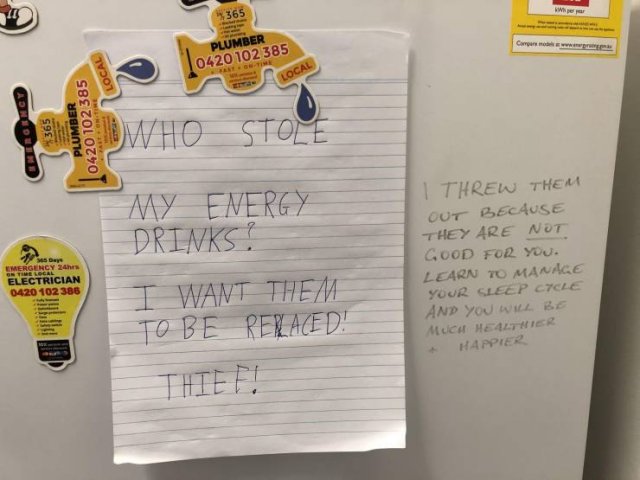 365
PLUMBER
0420 102 385
FAST & ON-TIME
LOCAL
EMERGENCY
365
PLUMBER
0420 102 385
FAST & ON-TIME
LOCAL
WHO STOLE
MY ENERGY
DRINKS?
I WANT THEM
TO BE RELACED!
THIEF!
365 Days
EMERGENCY 24hrs
ON TIME LOCAL
ELECTRICIAN
0420 102 386
kWh per year
Compare models at
I THREW THEM
OUT BECAUSE
THEY ARE NOT
GOOD FOR YOU.
LEARN TO MANAGE
YOUR SLEEP CYCLE
AND YOU WILL BE
MUCH HEALTHIER
+ HAPPIER